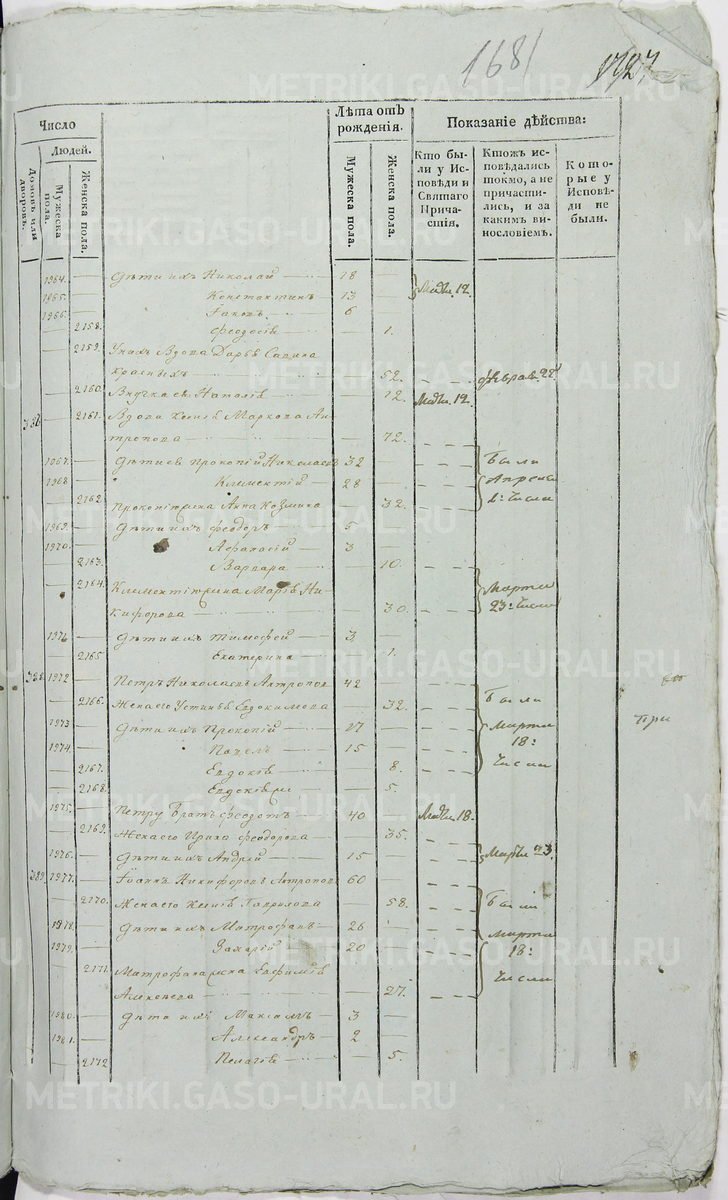 1681
1727
Число
Людей.
Домовъ или дворовъ.
Мужеска пола.
Женска пола.
Лѣта отъ рожденія.
Мужеска пола.
Женска пола.
Показаніе дѣйства:
Кто бы-
ли у Ис-
повѣди и
Святаго
Прича-
стія.
Ктожъ ис-
повѣдались
токмо, а не
причасти-
лись, и за
какимъ ви-
нословіемъ.
Кото-
рые у
Исповѣ-
ди не
были.
1964. — Дѣти ихъ Николай — 18 —
1965. — Константинъ — 13 — Мар. 12.
1966. — Іаковъ — 6 —
2158. Феодосія — 1.
2159. У нихъ Вдова Дарья Савина
52. Феврал. 22
2160. Внучка ея Наталія — 12. Мар. 12.
2161. Вдова Ксенія Маркова Ан-
тропова — 72.
1967. — Дѣти ея Прокопій Николаевъ 32 — Были
1968. — Климентій — 28 — Апреля
2162. Прокопіева жена Анна Козмина 32. числа
1969. — Дѣти ихъ Феодоръ — 5 —
1970. — Афанасій — 3 —
2163. Варвара — 10.
2164. Климентіева жена Марія Ни- Марта
кифорова — 30. 23: числа
1971. — Дѣти ихъ Тимофей — 3 —
2165. Екатерина — 1.
1972. — Петръ Николаевъ Антропов 42 —
2166. Жена его Устинья Евдокимова — 32. Были
1973. — Дѣти ихъ Прокопій — 17 — Марта
1974. — Павелъ — 15 — 18:
2167. Евдокія — 8. числа
2168. 5.
1975. — Петру Братъ Феодотъ — 40 — Мар. 18.
2169. Жена его Ирина Феодорова — 35.
1976. — Дѣти ихъ Андрей — 15 — Мар. 23.
1977. — Іоаннъ Никифоровъ Антропов 60 —
2170. Жена его Ксенія Гаврилова — 58. Были
1978. — Дѣти ихъ Митрофанъ — 26 — Марта
1979. — Захарій — 20 — 18:
2171. Митрофана жена Евфимія числа
27.
1980. — Дѣти ихъ Максимъ — 3 —
1981. — Александръ — 2 —
2172 Пелагія — 5.
при
METRIKI.GASO-URAL.RU